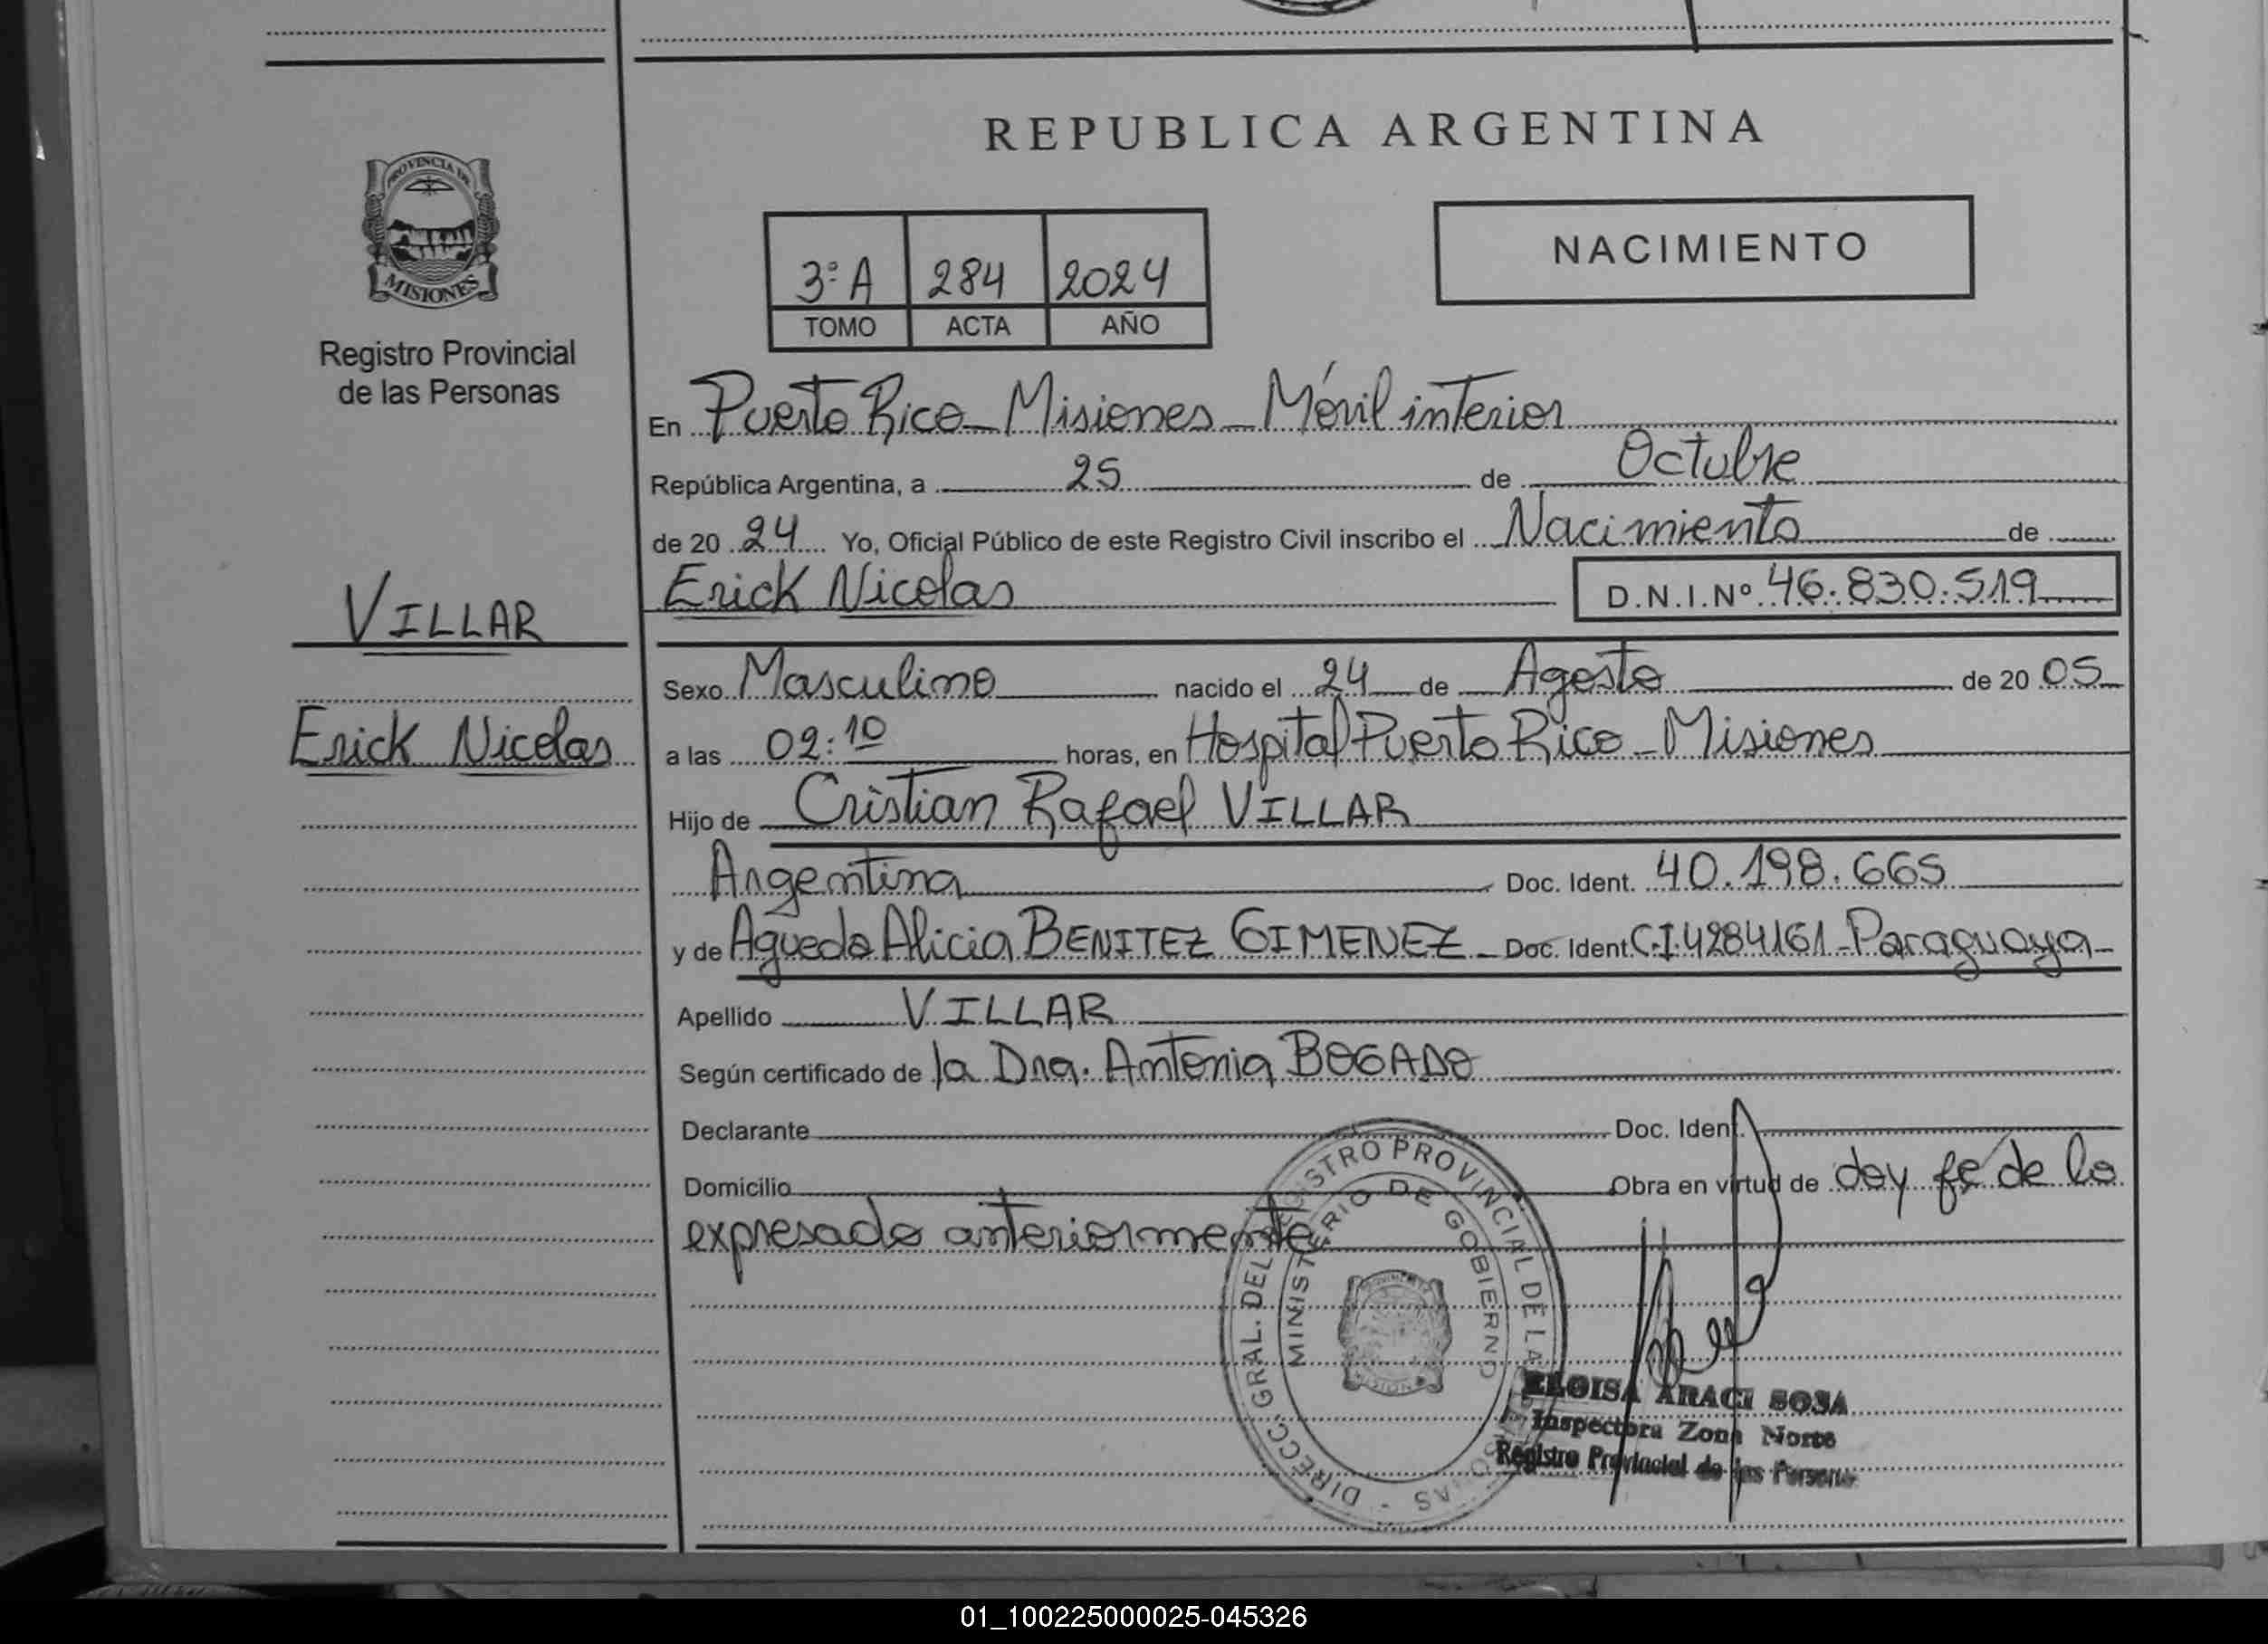 REPUBLICA ARGENTINA
PROVINCIA DE
MISIONES
Registro Provincial
de las Personas
3ª A 284 2024
TOMO ACTA AÑO
NACIMIENTO
En Puerto Rico - Misiones - Móvil interior
República Argentina, a 25 de Octubre
de 20 24 Yo, Oficial Público de este Registro Civil inscribo el Nacimiento de
Erick Nicolas D.N.I.Nº 46.830.519
VILLAR
Erick Nicolas
Sexo Masculino nacido el 24 de Agosto de 20 05
a las 02:10 horas, en Hospital Puerto Rico - Misiones
Hijo de Cristian Rafael VILLAR
Argentina Doc. Ident. 40.198.665
y de Agueda Alicia BENITEZ GIMENEZ - Doc. Ident. C.I. 4284161 - Paraguaya -
Apellido VILLAR
Según certificado de la Dra. Antonia BOGADO
Declarante Doc. Ident.
Domicilio Obra en virtud de doy fé de lo
expresado anteriormente
DIRECC. GRAL. DEL REGISTRO PROVINCIAL DE LAS PERSONAS
MINISTERIO DE GOBIERNO
ELOISA ARACI SOSA
Inspectora Zona Norte
Registro Provincial de las Personas
01_100225000025-045326